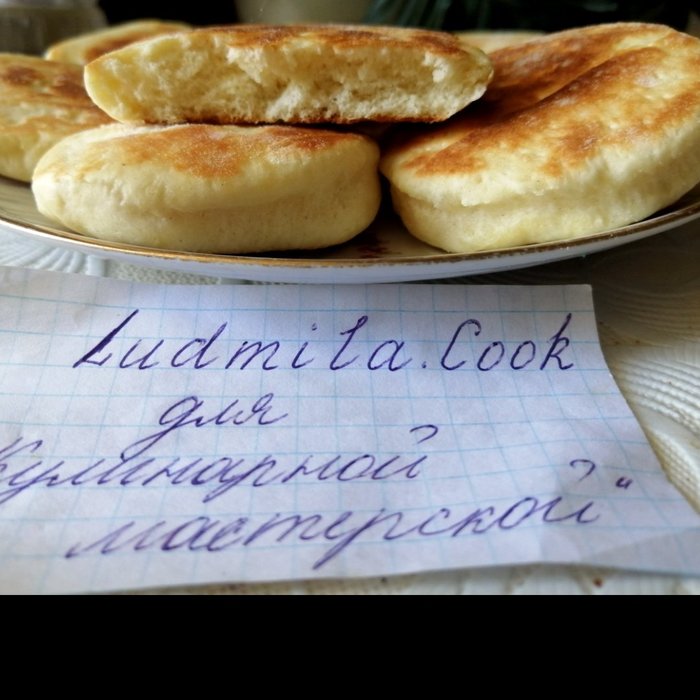 Ludmila.Cook
для
Кулинарной
мастерской"